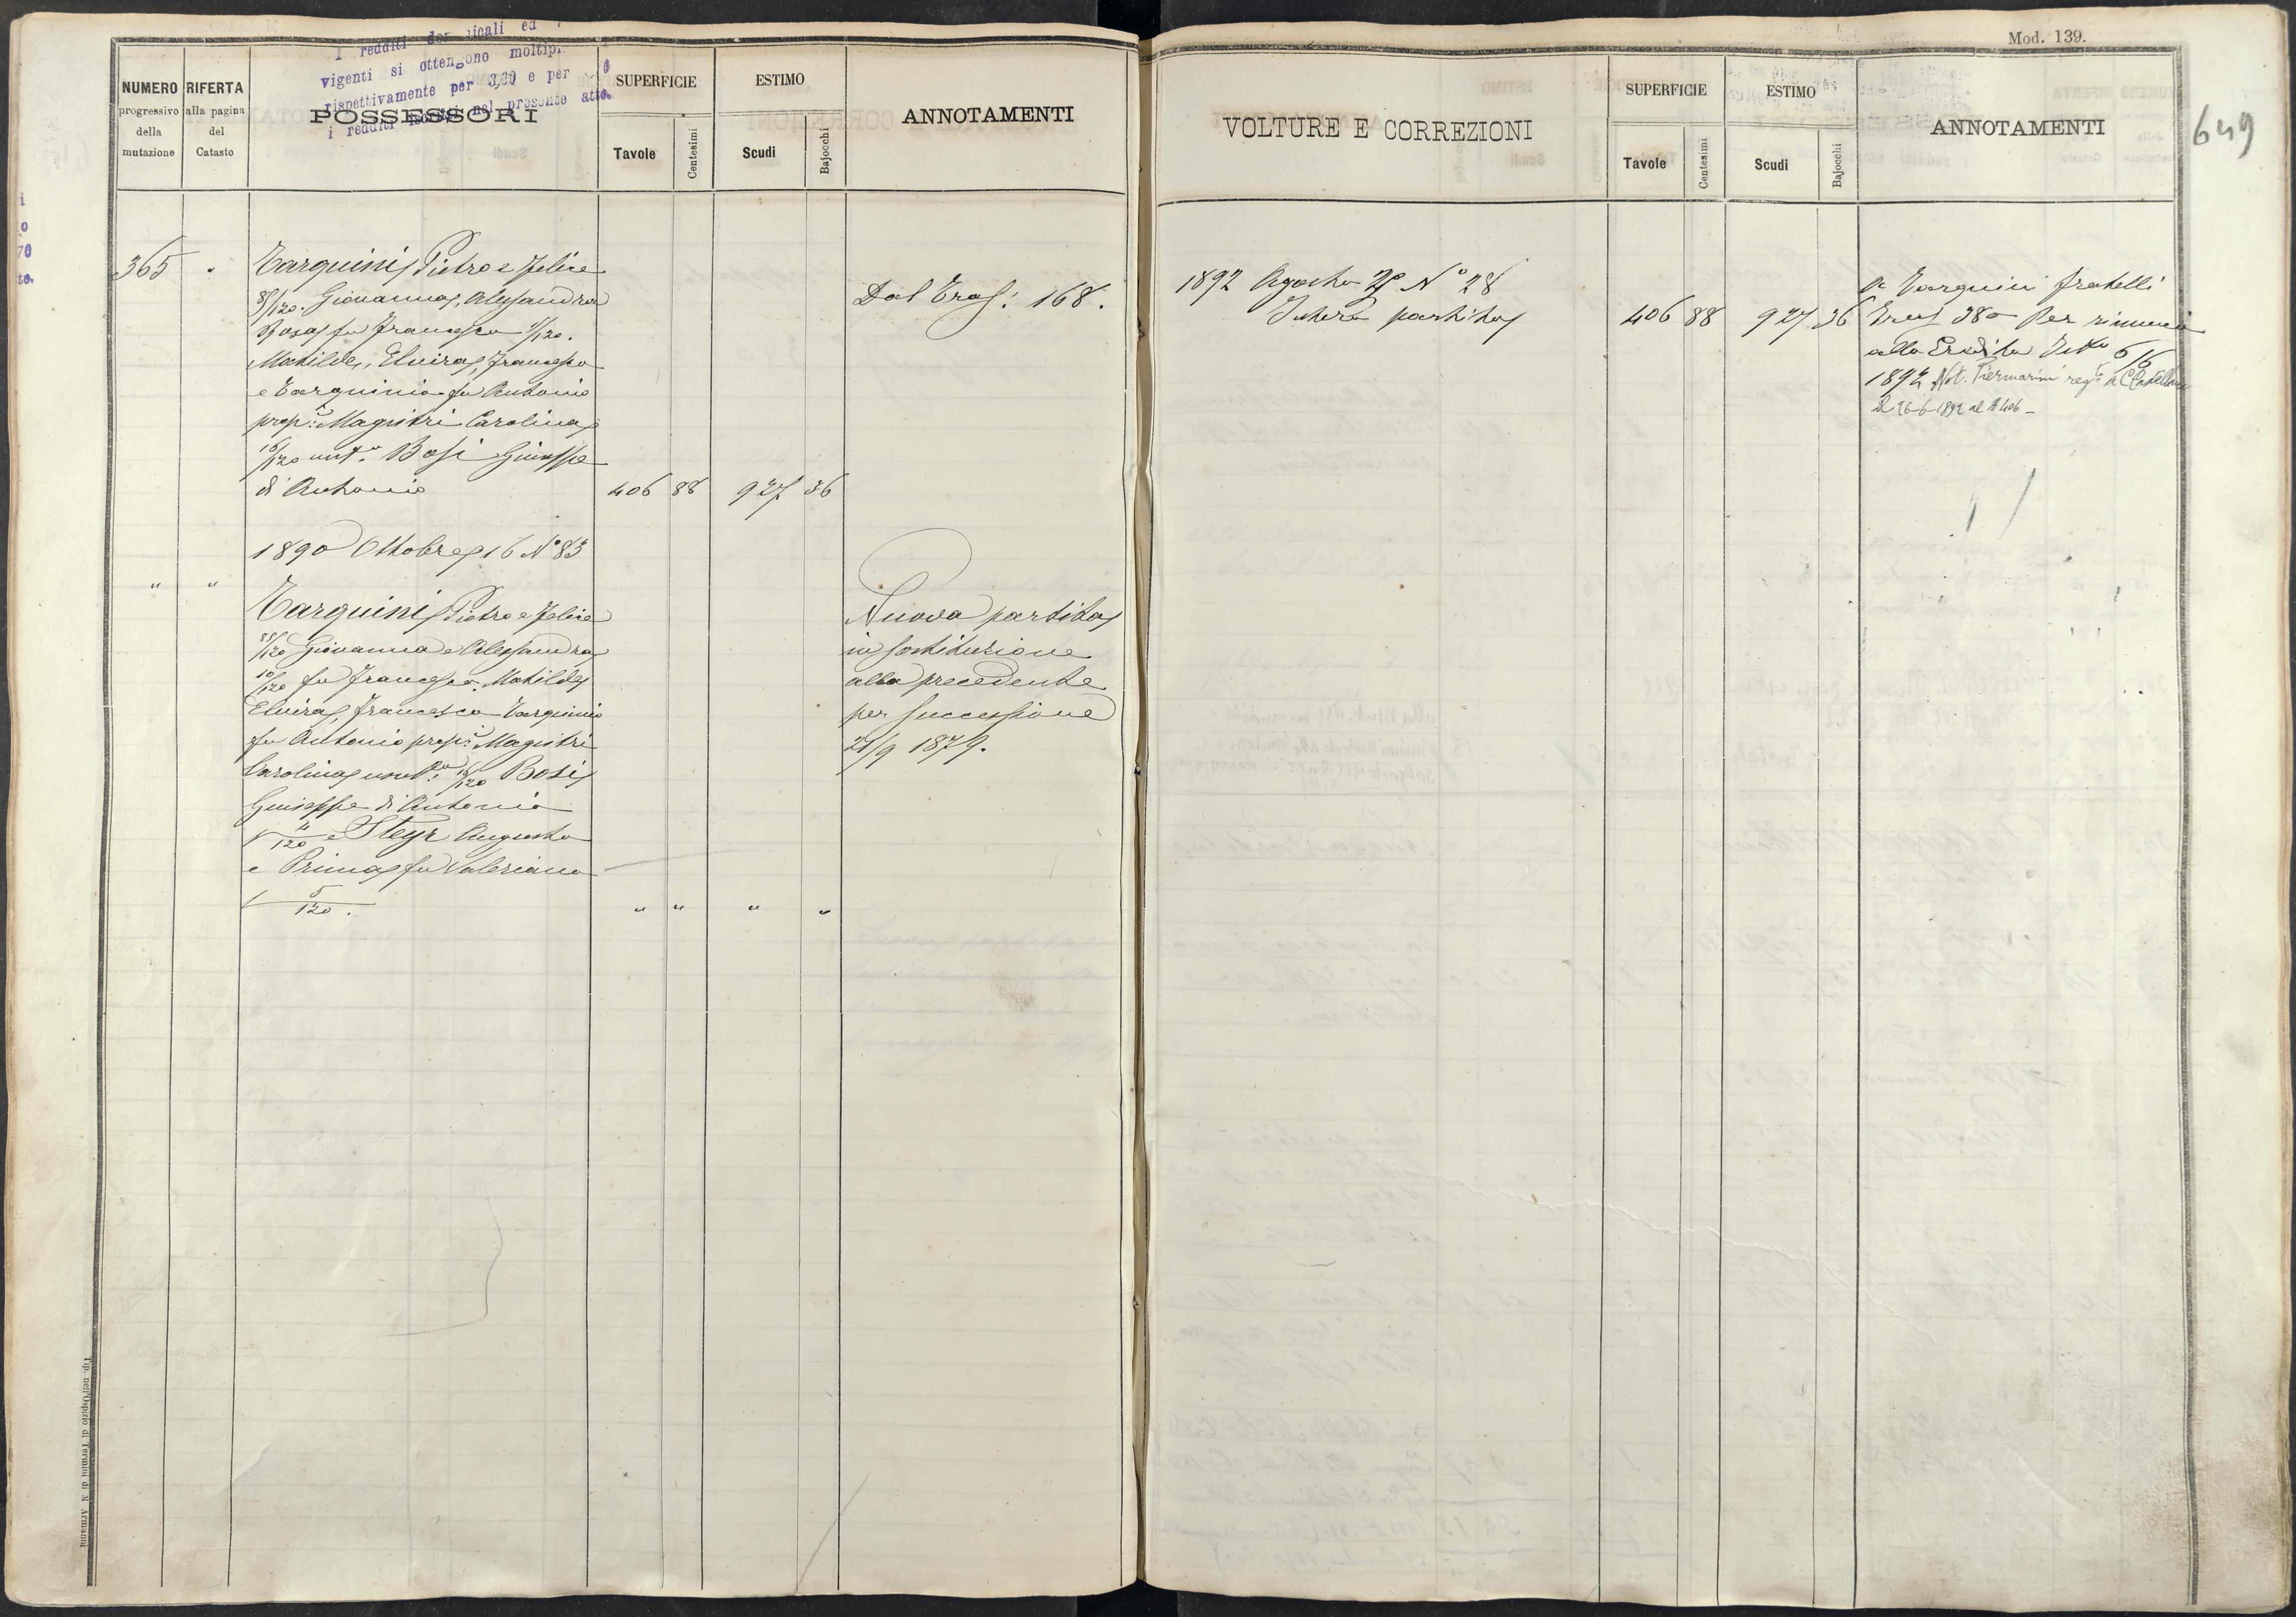 I redditi dominicali ed
vigenti si ottengono moltipl
rispettivamente per 3,30 e per
i redditi nel presente atto.
NUMERO progressivo della mutazione
RIFERTA alla pagina del Catasto
POSSESSORI
SUPERFICIE
Tavole
Centesimi
ESTIMO
Scudi
Bajocchi
ANNOTAMENTI
365 "
Tarquini Pietro e Felice
85/120. Giovanna, Alessandra
Rosa fu Francesco /120.
Matilde, Elvira, Francesca
e Tarquinio fu Antonio
prop.i Magistri Carolina
16/120 usuf.a Bosi Giuseppe
di Antonio 406 88 927 36
Dal Tras: 168.
1890 Ottobre 16 N° 83
" "
Tarquini Pietro e Felice
85/120 Giovanna e Alessandra
10/120 fu Francesco. Matilde
Elvira, Francesca Tarquinio
fu Antonio prop.i Magistri
Carolina usuf.a 16/120 Bosi
Giuseppe di Antonio
4/120 e Steyr Augusto
e Prima fu Valeriano
5/120. " " " "
Nuova partita
in sostituzione
alla precedente
per successione
21/9 1879.
Tip. nell'Ospizio di Termini di N. Armanni
Mod. 139.
649
VOLTURE E CORREZIONI
SUPERFICIE
Tavole
Centesimi
ESTIMO
Scudi
Bajocchi
ANNOTAMENTI
1892 Agosto 27 N° 28
Intera partita 406 88 927 36
a Tarquini fratelli
Tras 380 Per rinuncia
alla Eredità 6/6
1892 Not. Piermarini reg. a C. Castellana
il 26-6-1892 al N 406 -